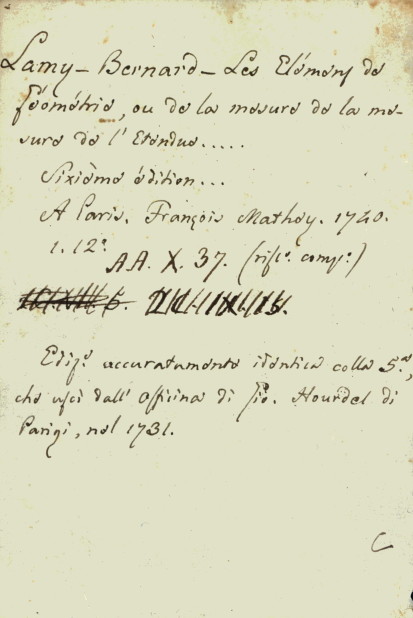 Lamy – Bernard – Les Elémens de
Géométrie, ou de la mesure de la me-
sure de l'Etendue.....
Sixième édition...
A Paris. François Mathey. 1740.
1. 12°
AA. X. 37. (rifto. compo.)
6.
Edize. accuratamente identica colla 5.a,
che uscì dall' officina di Gio. Hourdel di
Parigi, nel 1731.
C